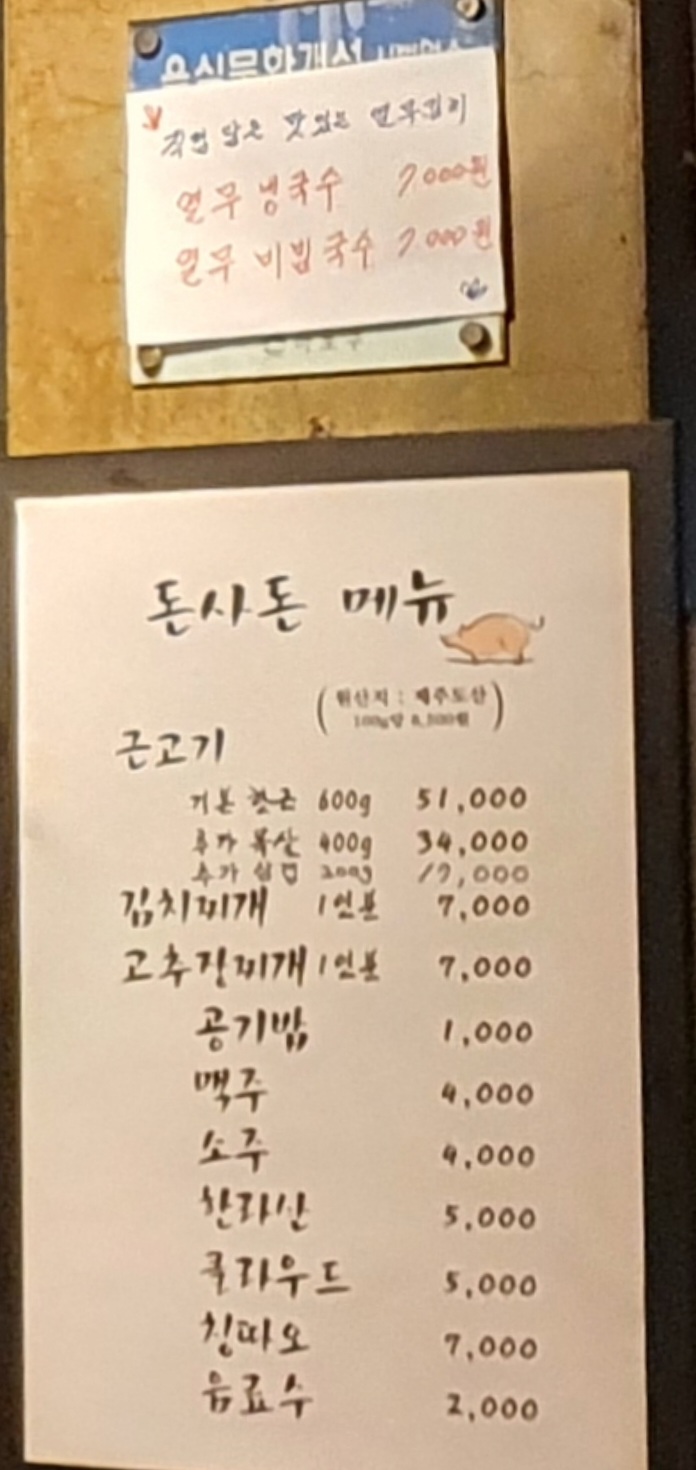 음식문화개선
직접 담은 맛있는 열무김치
열무 냉국수 7000원
열무 비빔국수 7000원
돈사돈 메뉴
(원산지 : 제주도산
100g당 8,500원)
근고기
기본 한근 600g 51,000
추가 목살 400g 34,000
추가 삼겹 200g 17,000
김치찌개 1인분 7,000
고추장찌개 1인분 7,000
공기밥 1,000
맥주 4,000
소주 4,000
한라산 5,000
클라우드 5,000
칭따오 7,000
음료수 2,000